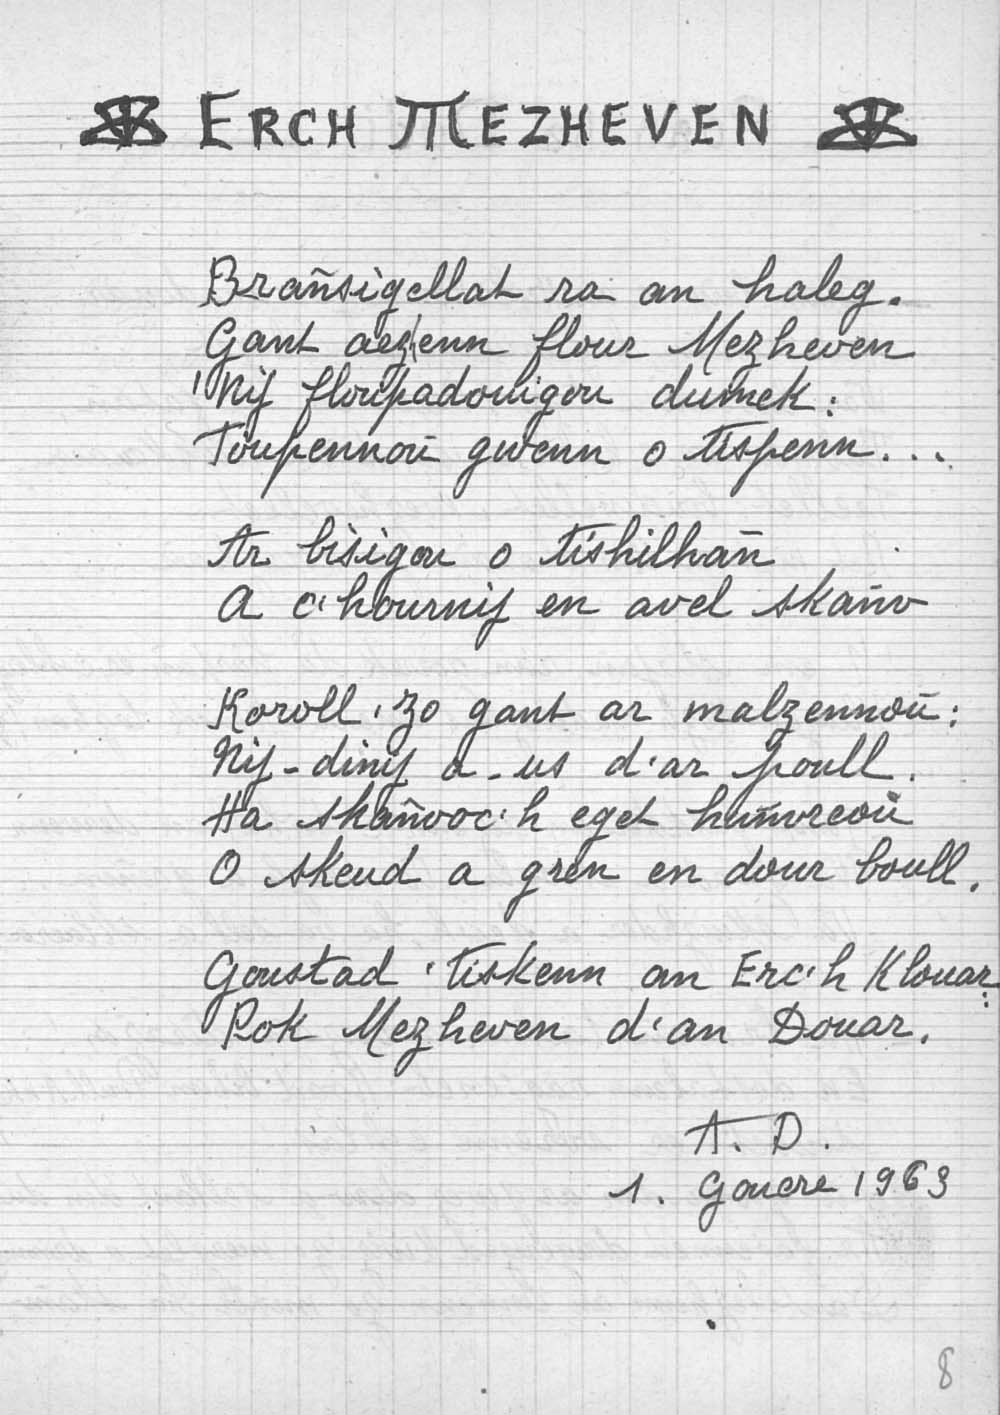 ERCH MEZHEVEN
Brañsigellat ra an haleg.
Gant aezenn flour Mezheven
'Nij floupadouigou dumek:
Toupennoù gwenn o tispenn...
Ar bisigou o tishilhañ
A c'hournij en avel skañv
Koroll 'zo gant ar malzennoù:
Nij-dinij a-us d'ar poull.
Ha skañvoc'h eget huñvreoù
O skeud a gren en dour boull.
Goustad 'tiskenn an Erc'h Klouar:
Pok Mezheven d'an Douar.
A. D.
1. Gouere 1963
8